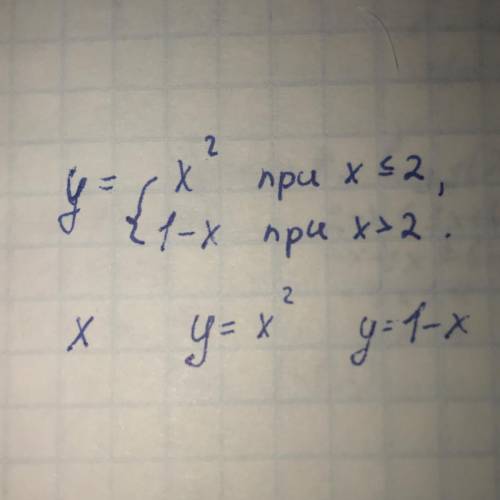 y = { x² при x ≤ 2,
1-x при x > 2.
x y = x² y = 1-x